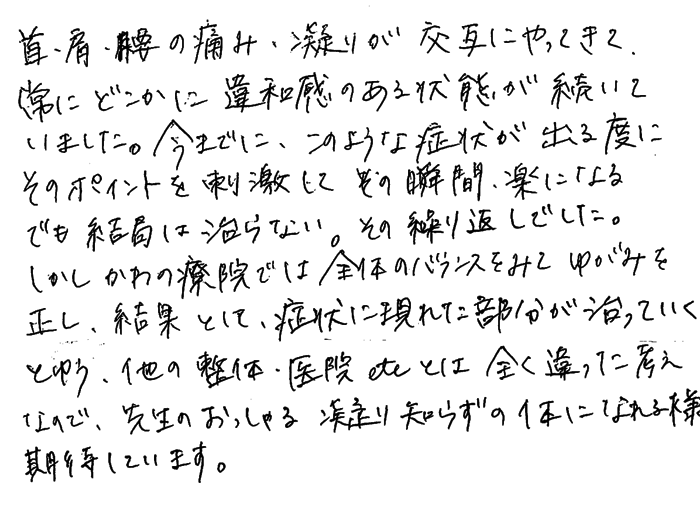 首・肩・腰の痛み、凝りが交互にやってきて、
常にどこかに違和感のある状態が続いて
いました。今までに、このような症状が出る度に
そのポイントを刺激してその瞬間、楽になる
でも結局は治らない。その繰り返しでした。
しかしかわの療院では全体のバランスをみてゆがみを
正し、結果として、症状に現れた部分が治っていく
とゆう、他の整体・医院etcとは全く違った考え
なので、先生のおっしゃる凝り知らずの体になれる様
期待しています。